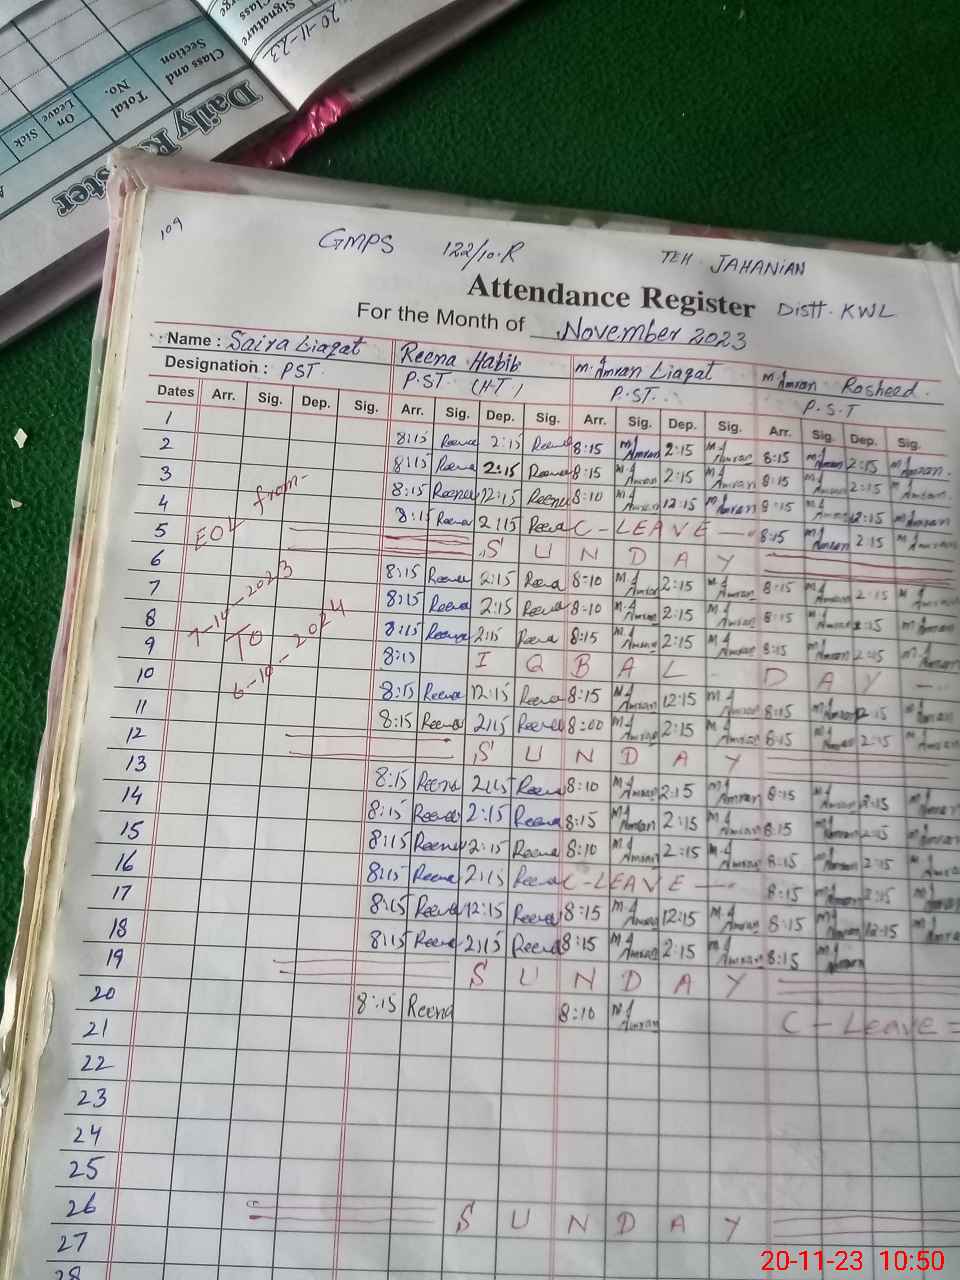 20-11-23
Signature
Class
Class and Section
Total No.
On Leave
Sick
Daily
109
GMPS 122/10.R TEH. JAHANIAN
Attendance Register Distt. KWL
For the Month of November 2023
Name : Saira Liaqat Reena Habib M. Amran Liaqat M. Amran Rasheed.
Designation : PST. P.ST. (H.T) P.ST. P.S.T
Dates Arr. Sig. Dep. Sig. Arr. Sig. Dep. Sig. Arr. Sig. Dep. Sig. Arr. Sig. Dep. Sig.
1 8:15 Reena 2:15 Reena 8:15 M. Amran 2:15 M. Amran 8:15 M. Amran 2:15 M. Amran
2 8:15 Reena 2:15 Reena 8:15 M. Amran 2:15 M. Amran 8:15 M. Amran 2:15 M. Amran
3 8:15 Reena 12:15 Reena 8:10 M. Amran 12:15 M. Amran 8:15 M. Amran 12:15 M. Amran
4 EOL from- 8:15 Reena 2:15 Reena C-LEAVE 8:15 M. Amran 2:15 M. Amran
5 S U N D A Y
6 7-10-2023 8:15 Reena 2:15 Reena 8:10 M. Amran 2:15 M. Amran 8:15 M. Amran 2:15 M. Amran
7 TO 8:15 Reena 2:15 Reena 8:10 M. Amran 2:15 M. Amran 8:15 M. Amran 2:15 M. Amran
8 6-10-2024 8:15 Reena 2:15 Reena 8:15 M. Amran 2:15 M. Amran 8:15 M. Amran 2:15 M. Amran
9 8:15 I Q B A L D A Y
10 8:15 Reena 12:15 Reena 8:15 M. Amran 12:15 M. Amran 8:15 M. Amran 12:15 M. Amran
11 8:15 Reena 2:15 Reena 8:00 M. Amran 2:15 M. Amran 8:15 M. Amran 2:15 M. Amran
12 S U N D A Y
13 8:15 Reena 2:15 Reena 8:10 M. Amran 2:15 M. Amran 8:15 M. Amran 2:15 M. Amran
14 8:15 Reena 2:15 Reena 8:15 M. Amran 2:15 M. Amran 8:15 M. Amran 2:15 M. Amran
15 8:15 Reena 2:15 Reena 8:10 M. Amran 2:15 M. Amran 8:15 M. Amran 2:15 M. Amran
16 8:15 Reena 2:15 Reena C-LEAVE 8:15 M. Amran 2:15 M. Amran
17 8:15 Reena 12:15 Reena 8:15 M. Amran 12:15 M. Amran 8:15 M. Amran 12:15 M. Amran
18 8:15 Reena 2:15 Reena 8:15 M. Amran 2:15 M. Amran 8:15 M. Amran
19 S U N D A Y
20 8:15 Reena 8:10 M. Amran C-Leave
21
22
23
24
25
26 S U N D A Y
27
28
20-11-23 10:50